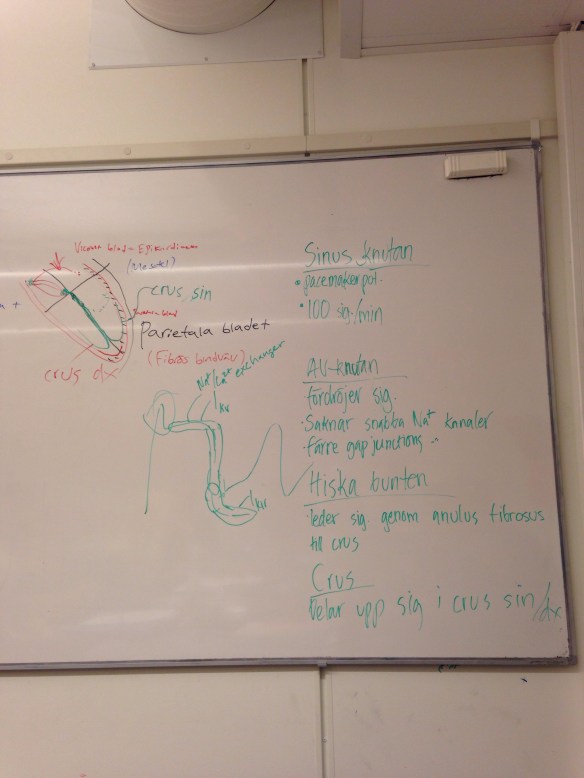 Viscerala bladet Epikardium
(Mesotel)
crus sin
Parietala bladet
(Fibrös bindväv)
crus dx
Na⁺/Ca²⁺ exchanger
Kr
Kir
Sinus knutan
• pacemakerpot.
• 100 sig./min
AV-knutan
fördröjer sig.
• Saknar snabba Na⁺ kanaler
• Färre gap junctions
Hiska bunten
• leder sig. genom anulus fibrosus
till crus
Crus
Delar upp sig i crus sin/dx